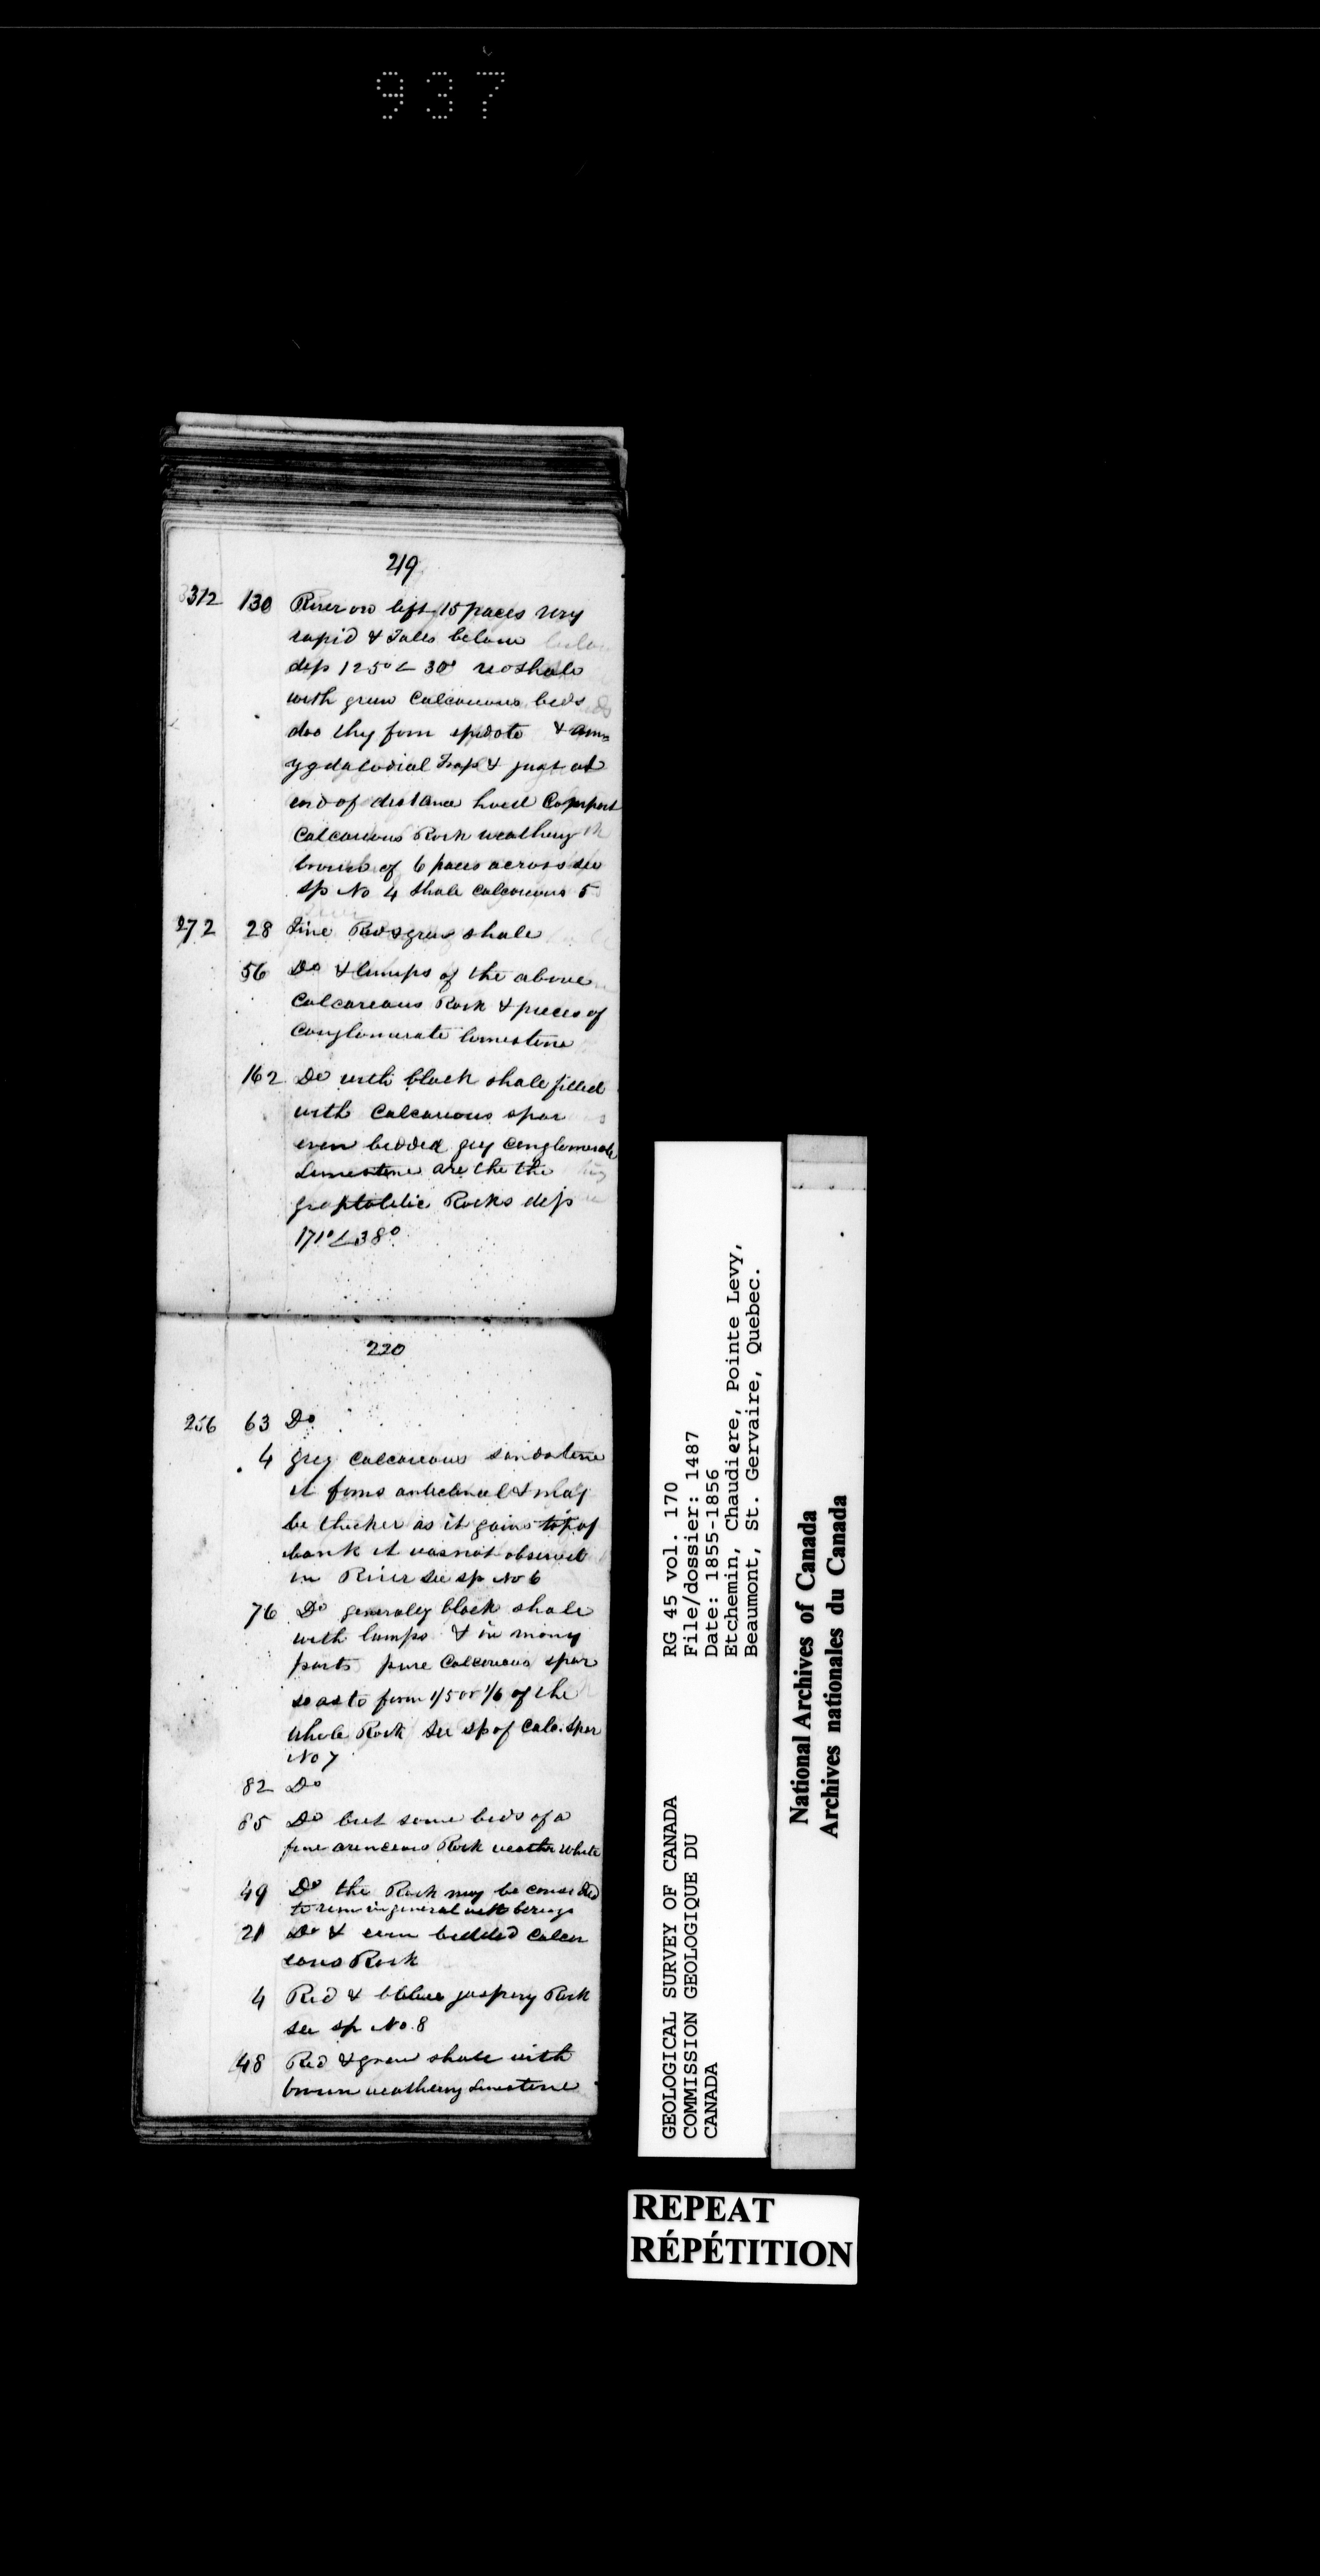 937
219
312 130 River on left 15 paces very
rapid & Falls below
dip 125° ∠ 30° red shale
with green Calcareous beds
also they form epidote & am=
ygdaloidial Trap & just at
end of distance
Calcareous Rock weathering
brown of 6 paces across see
sp No 4 shale calcareous 5
272 28 Fine Red & green shale
56 Do & lumps of the above
Calcareous Rock & pieces of
Conglomerate limestone
162 Do with black shale filled
with Calcareous spar
even bedded grey Conglomerate
Limestone are the the
graptolitic Rocks dip
171° ∠ 38°
220
256 63 Do
4 grey calcareous sandstone
it forms anticlinal & may
be thicker as it gains top of
bank it was not observed
in River see sp No 6
76 Do generaley black shale
with lumps & in many
parts pure Calcareous spar
so as to form 1/5 or 1/6 of the
whole Rock see sp of Calc. spar
No 7
82 Do
85 Do but some beds of a
fine arenceous Rock weather white
49 Do the Rock may be
to run in general with
21 Do & even bedded Calcar
eous Rock
4 Red & jaspery Rock
see sp No. 8
48 Red & green shale with
brown weathering Limestone
GEOLOGICAL SURVEY OF CANADA
COMMISSION GEOLOGIQUE DU
CANADA
RG 45 vol. 170
File/dossier: 1487
Date: 1855-1856
Etchemin, Chaudiere, Pointe Levy,
Beaumont, St. Gervaire, Quebec.
National Archives of Canada
Archives nationales du Canada
REPEAT
RÉPÉTITION